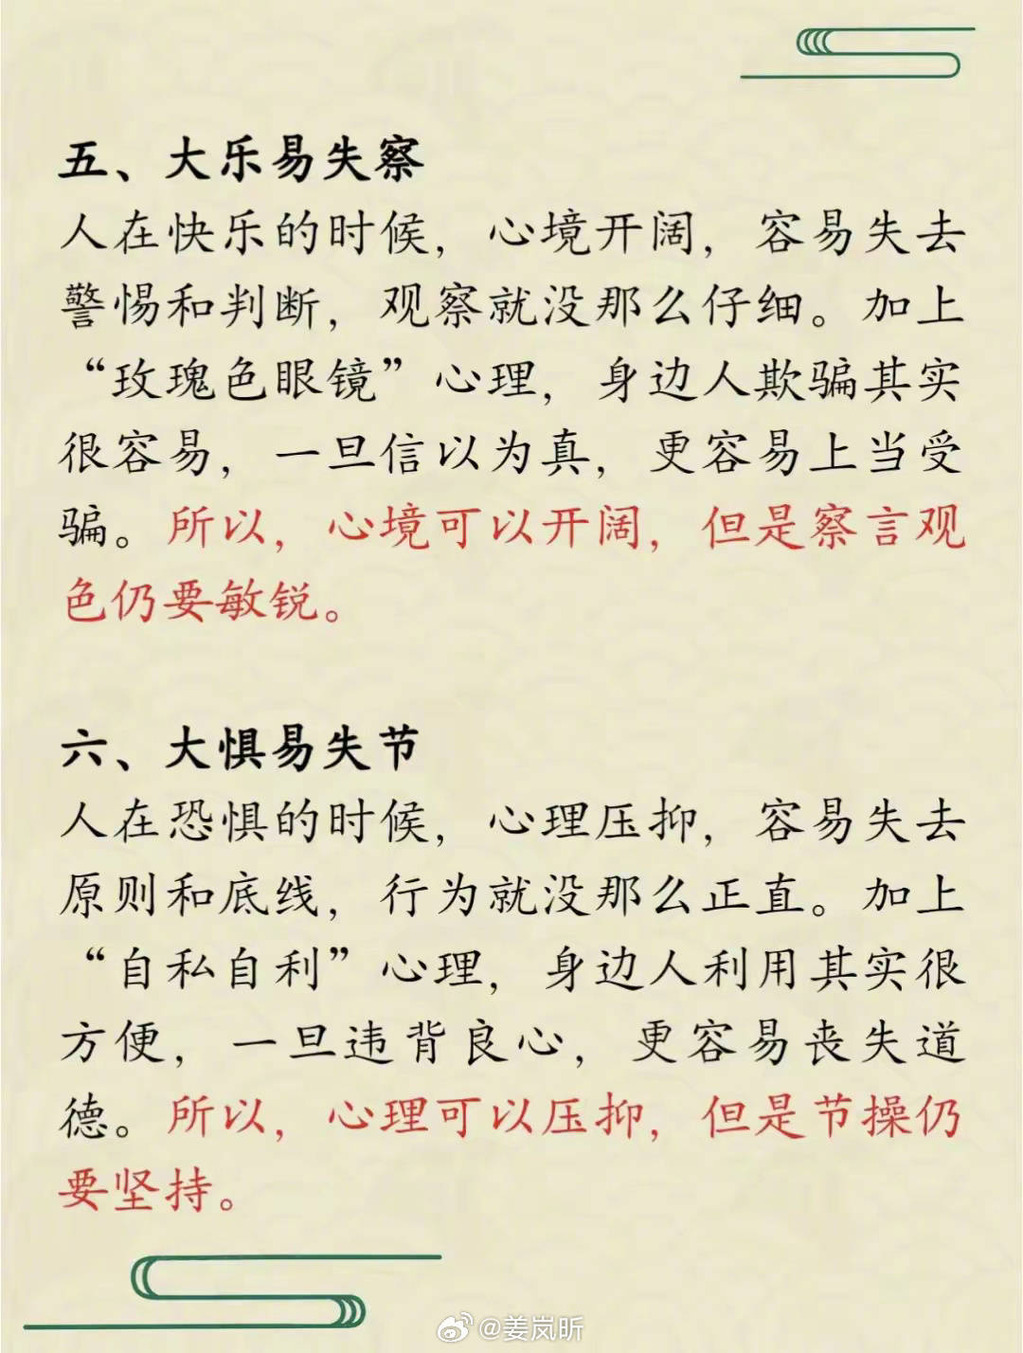 五、大乐易失察
人在快乐的时候，心境开阔，容易失去
警惕和判断，观察就没那么仔细。加上
“玫瑰色眼镜”心理，身边人欺骗其实
很容易，一旦信以为真，更容易上当受
骗。所以，心境可以开阔，但是察言观
色仍要敏锐。
六、大惧易失节
人在恐惧的时候，心理压抑，容易失去
原则和底线，行为就没那么正直。加上
“自私自利”心理，身边人利用其实很
方便，一旦违背良心，更容易丧失道
德。所以，心理可以压抑，但是节操仍
要坚持。
@姜岚昕